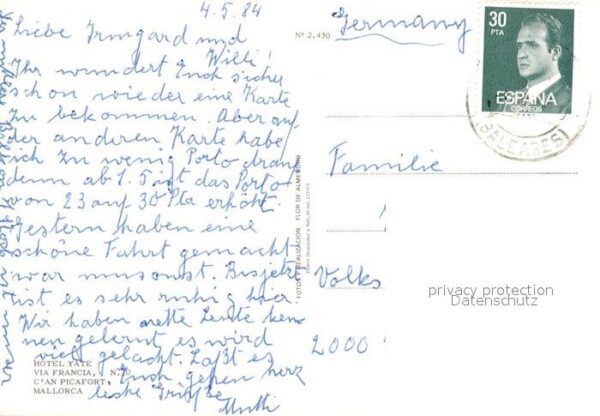 4.5.84
Liebe Irmgard und
Willi!
Ihr wundert Euch sicher
schon wieder eine Karte
zu bekommen. Aber auf
der anderen Karte habe
ich zu wenig Porto drauf
denn ab 1. ist das Porto
von 23 auf 30 Pta erhöht.
Gestern haben eine
schöne Fahrt gemacht
war umsonst. Bis jetzt
ist es sehr ruhig hier
Wir haben nette Leute ken
nen gelernt es wird
viel gelacht. Laßt es
Euch gehen herz
liche Grüße
Mutti
HOTEL YATE
VIA FRANCIA, N.
C'AN PICAFORT
MALLORCA
Nº 2.430
FOTOS Y REALIZACION FLOR DE ALMENDRO
Germany
30
PTA
ESPAÑA
CORREOS
(BALEARES)
Familie
Volks
privacy protection
Datenschutz
2000